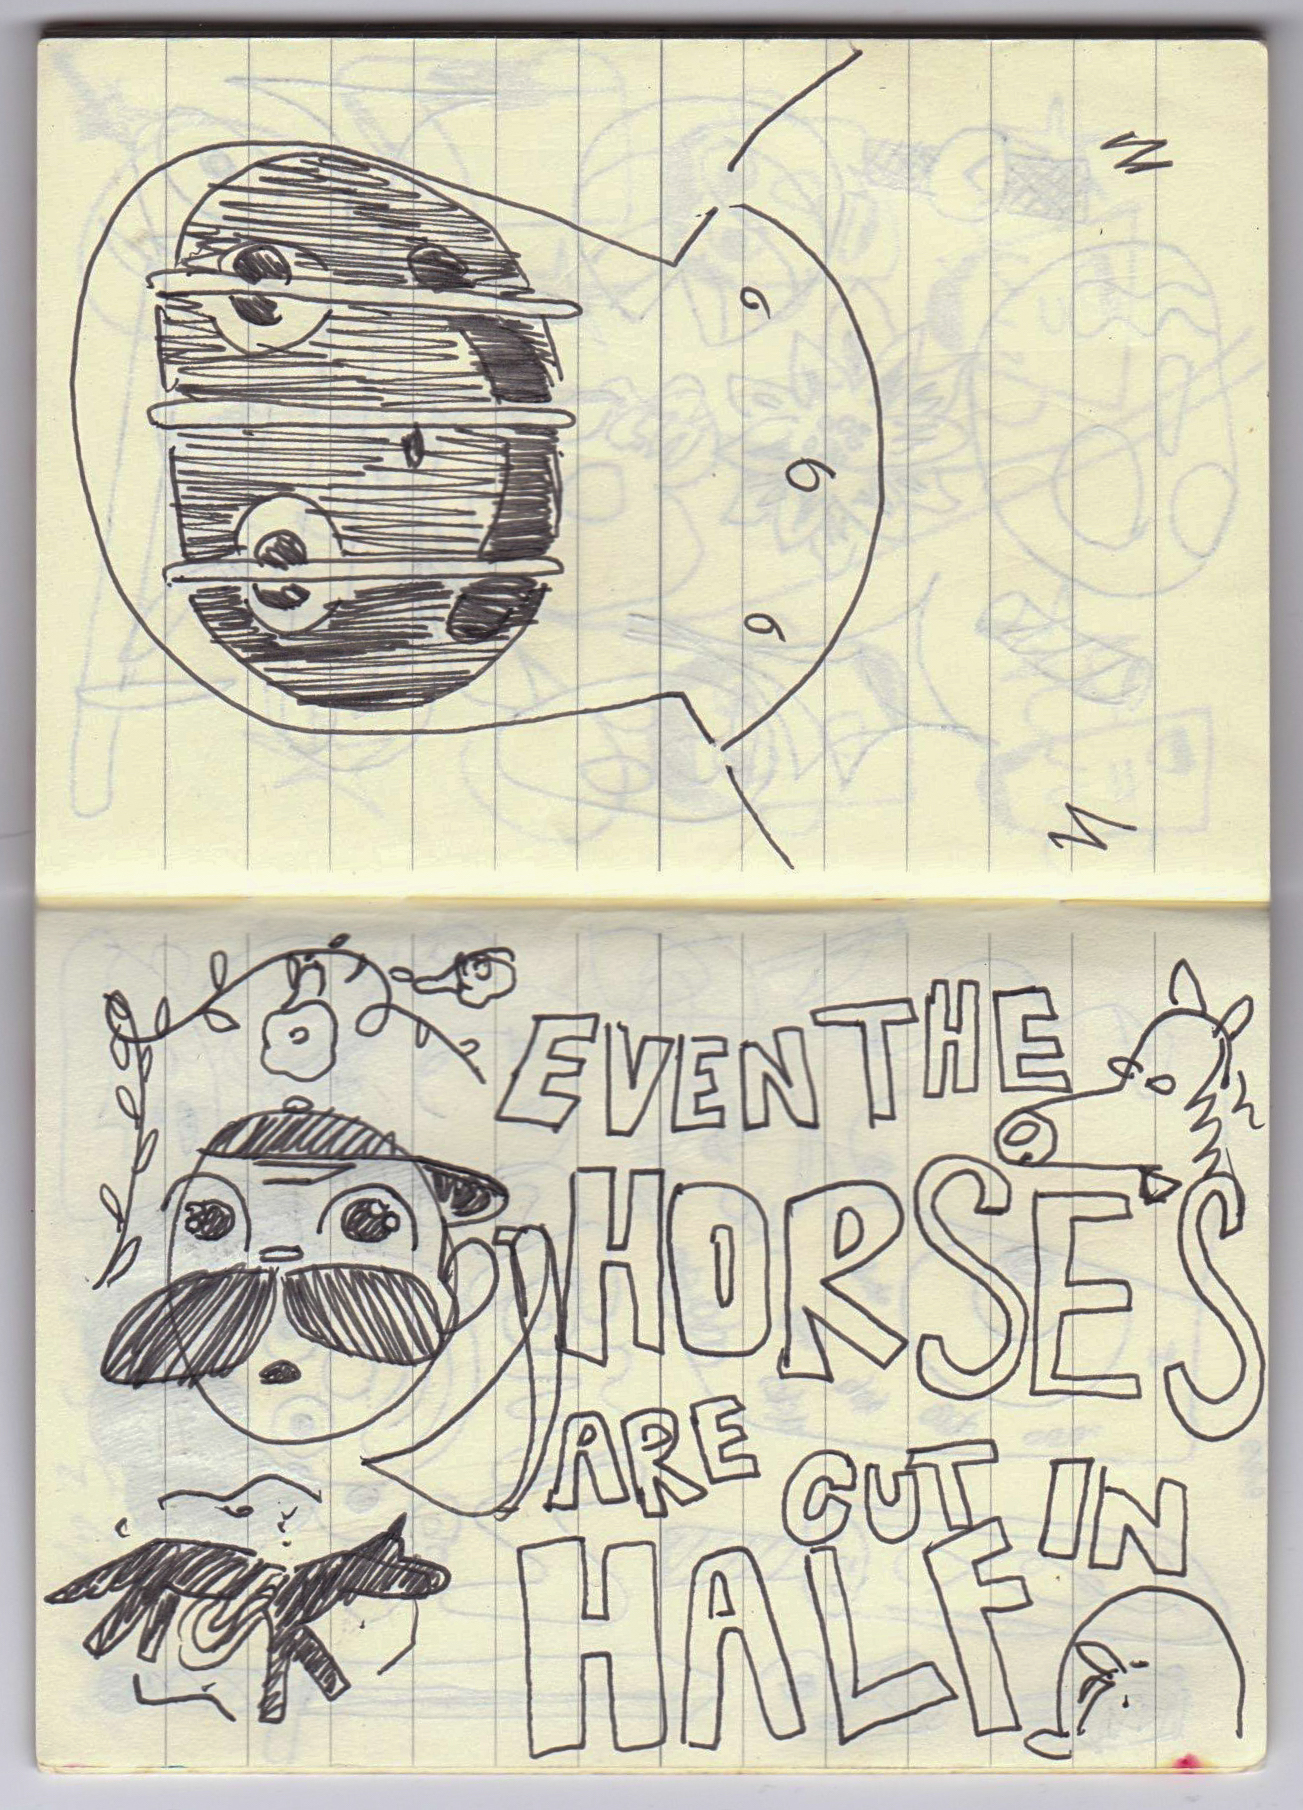 EVEN THE
HORSE'S
ARE CUT IN
HALF